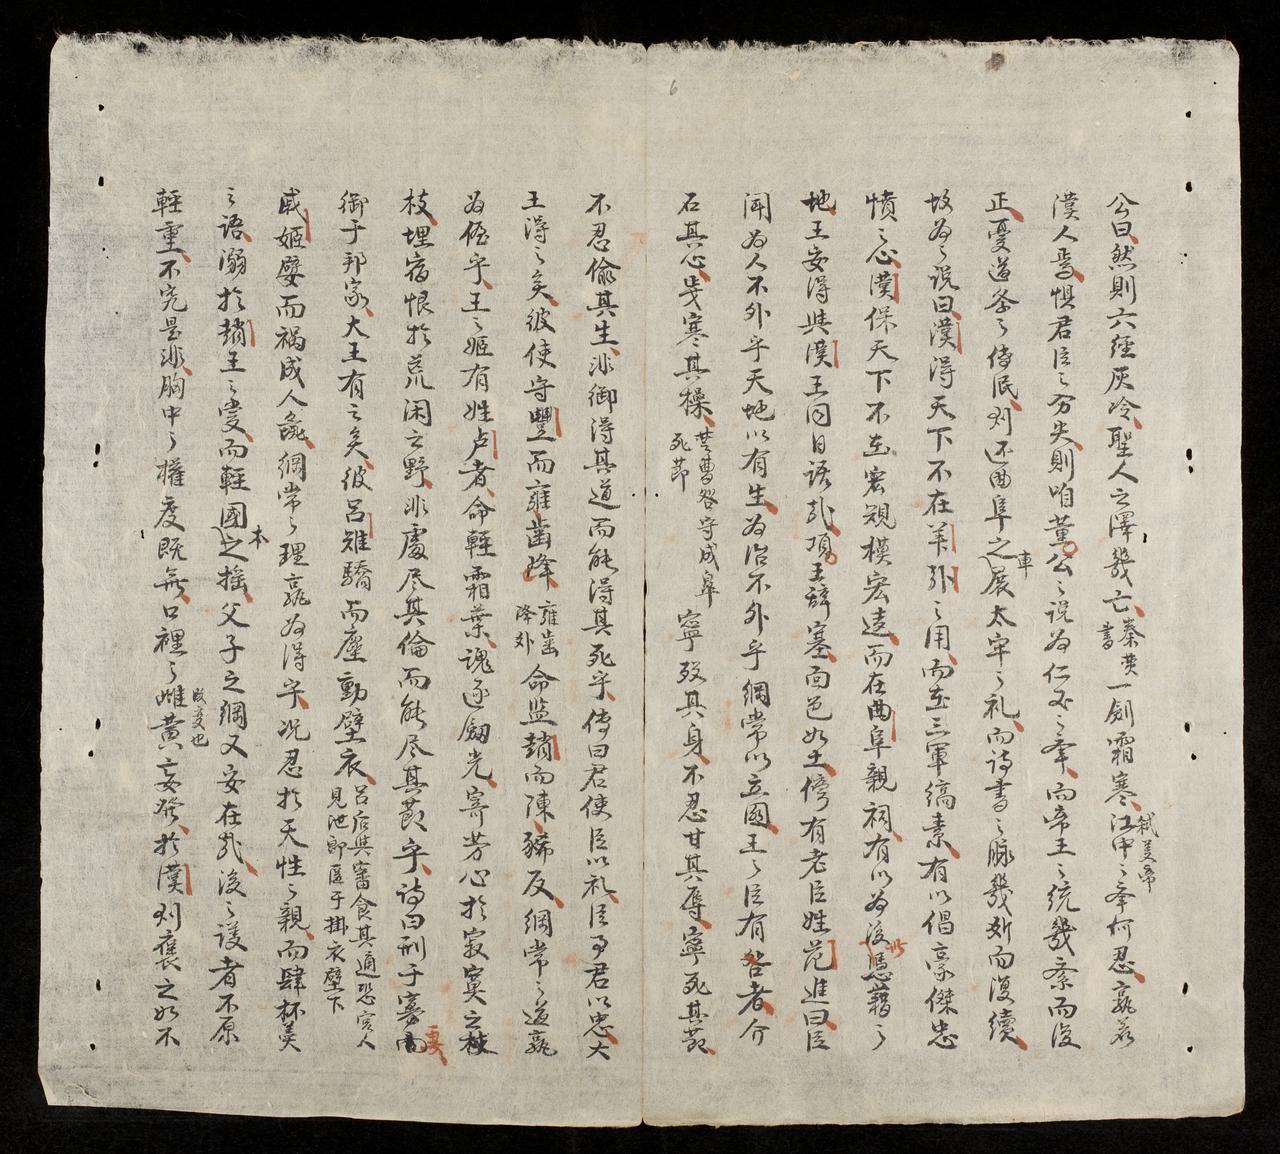 公曰然則六經灰冷聖人之澤幾亡秦焚書一劍霜寒江中之弑義帝奉何忍孰若
漢人焉惧君臣之分失則咱董公之說為仁義之舉而帝王之統幾紊而復
正憂道祭之侍民刘还曲阜之車展太牢之礼而詩書之脉幾斬而復續
故為之說曰漢得天下不在羊引之用而在三軍縞素有以倡豪傑忠
憤之心漢保天下不在宏規模宏遠而在曲阜親祠有以為後此憑藉之
地王安得與漢王同日語哉項王辞塞面色如土傍有老臣姓范進曰臣
聞為人不外乎天地以有生為治不外乎綱常以立國王之臣有咎者介
石其心歲寒其操焚曹咎守成皋死節寧殁其身不忍甘其辱寧死其節
不忍偷其生非御得其道而能得其死乎傳曰君使臣以礼臣事君以忠大
王得之矣彼使守豐而雍齒降雍齒降外命监趙而陳豨反綱常之道孰
為優乎王之姬有姓卢者命輕霜葉魂逐劍光寄芳心於寂寞之枝
枝埋宿恨於荒闲之野非處尽其倫而能尽其節乎詩曰刑于寡妻而
御于邦家大王有之矣彼呂雉驕而塵動壁衣呂后與審食其通恐宮人見池即匿于掛衣壁下
戚姬嬖而禍成人彘綱常之理孰為得乎况忍於天性之親而肆杯羹
之語溺於趙王之愛而輕國本之搖父子之綱又安在哉後之議者不原
輕重不究是非胸中之權度既無口裡之雌黄改变也妄發於漢刘褒之如不